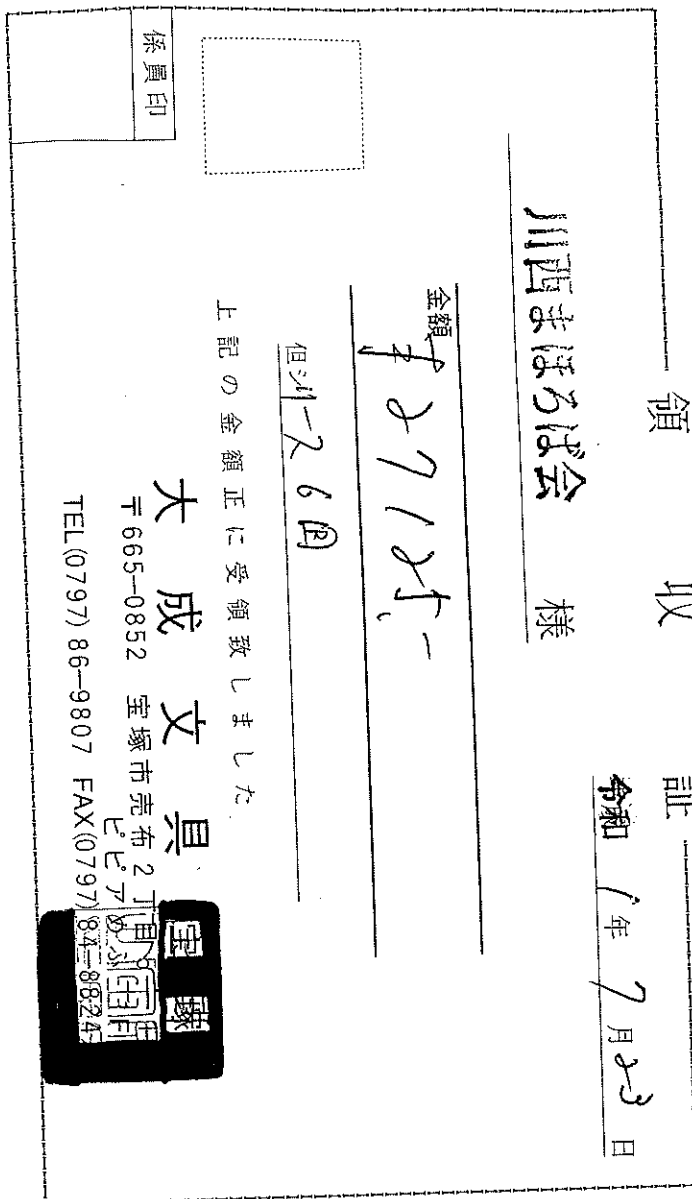 領収証
令和 1年 7月 23日
川西まほろば会 様
金額 ¥27125,-
但 シリース 6冊
上記の金額正に受領致しました
大成文具
〒665-0852 宝塚市売布2丁目5
ピピアめふ
TEL(0797)86-9807 FAX(0797)84-8824
宝塚
係員印